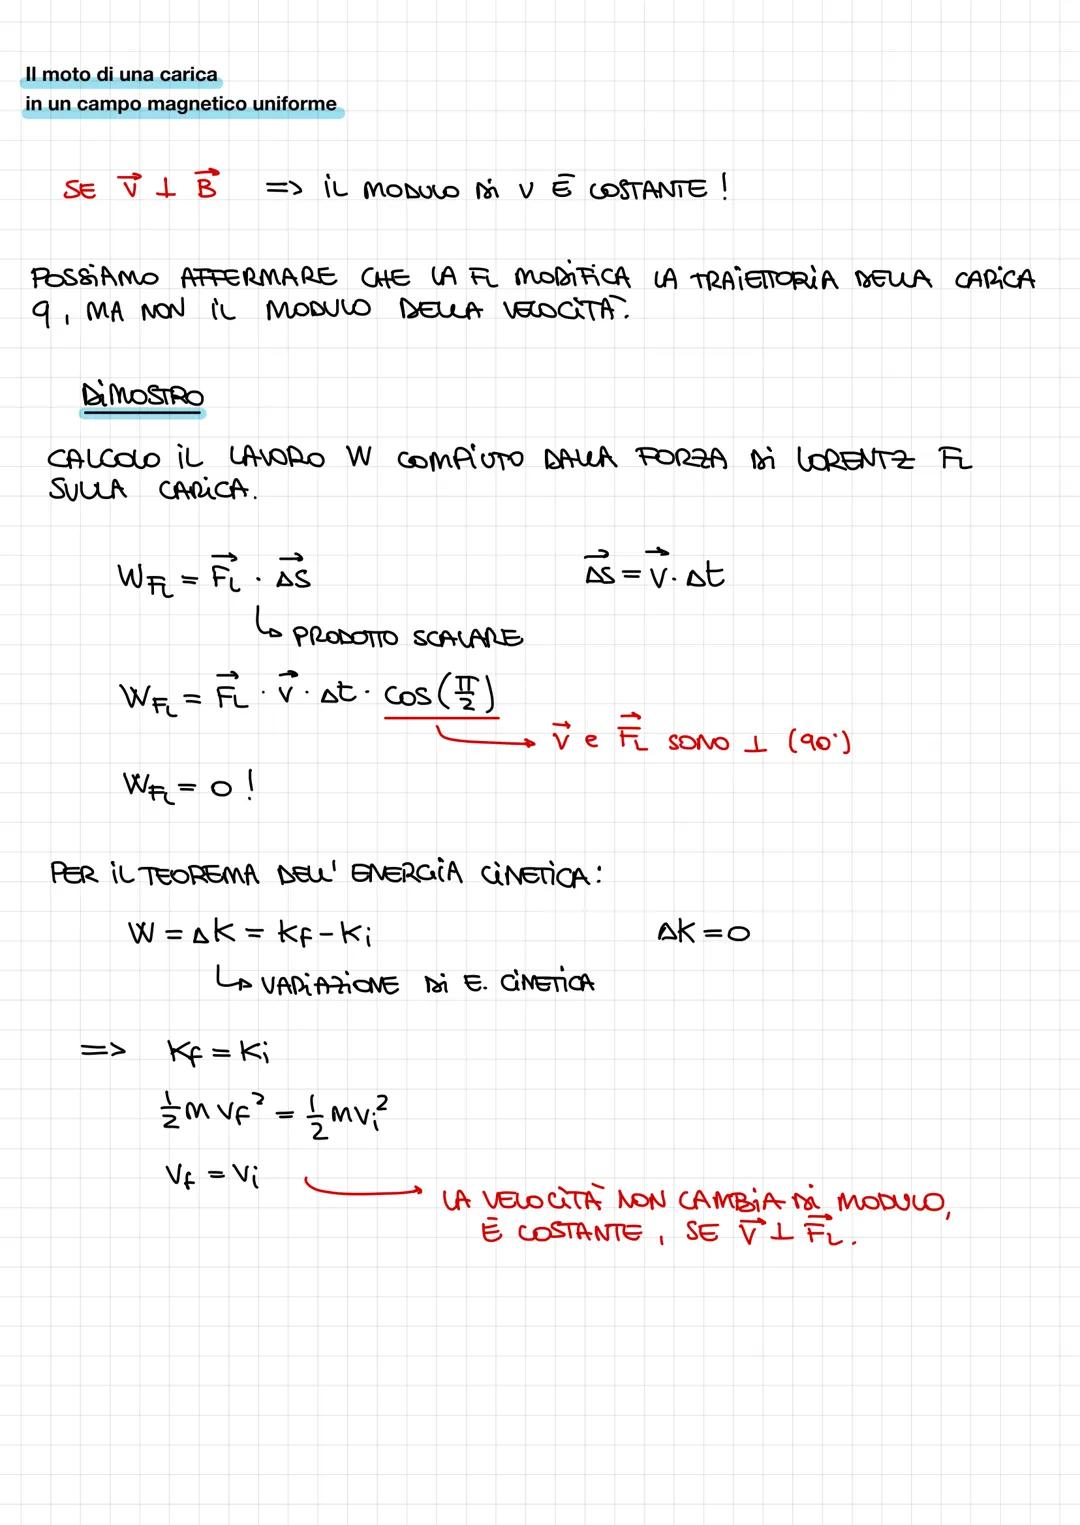 Il moto di una carica
in un campo magnetico uniforme
SE v⃗ ⊥ B⃗ => IL MODULO DI V È COSTANTE !
POSSIAMO AFFERMARE CHE LA FL MODIFICA LA TRAIETTORIA DELLA CARICA
q, MA NON IL MODULO DELLA VELOCITÀ.
DIMOSTRO
CALCOLO IL LAVORO W COMPIUTO DALLA FORZA DI LORENTZ FL
SULLA CARICA.
W_FL = F⃗L · Δ⃗S    Δ⃗S = V⃗ · Δt
↳ PRODOTTO SCALARE
W_FL = F⃗L · V⃗ · Δt · cos(π/2)
→ V⃗ e F⃗L SONO ⊥ (90°)
W_FL = 0 !
PER IL TEOREMA DELL' ENERGIA CINETICA:
W = ΔK = Kf - Ki    ΔK = 0
↳ VARIAZIONE DI E. CINETICA
=> Kf = Ki
1/2 m Vf² = 1/2 m Vi²
Vf = Vi → LA VELOCITÀ NON CAMBIA DI MODULO,
È COSTANTE, SE V⃗ ⊥ F⃗L.